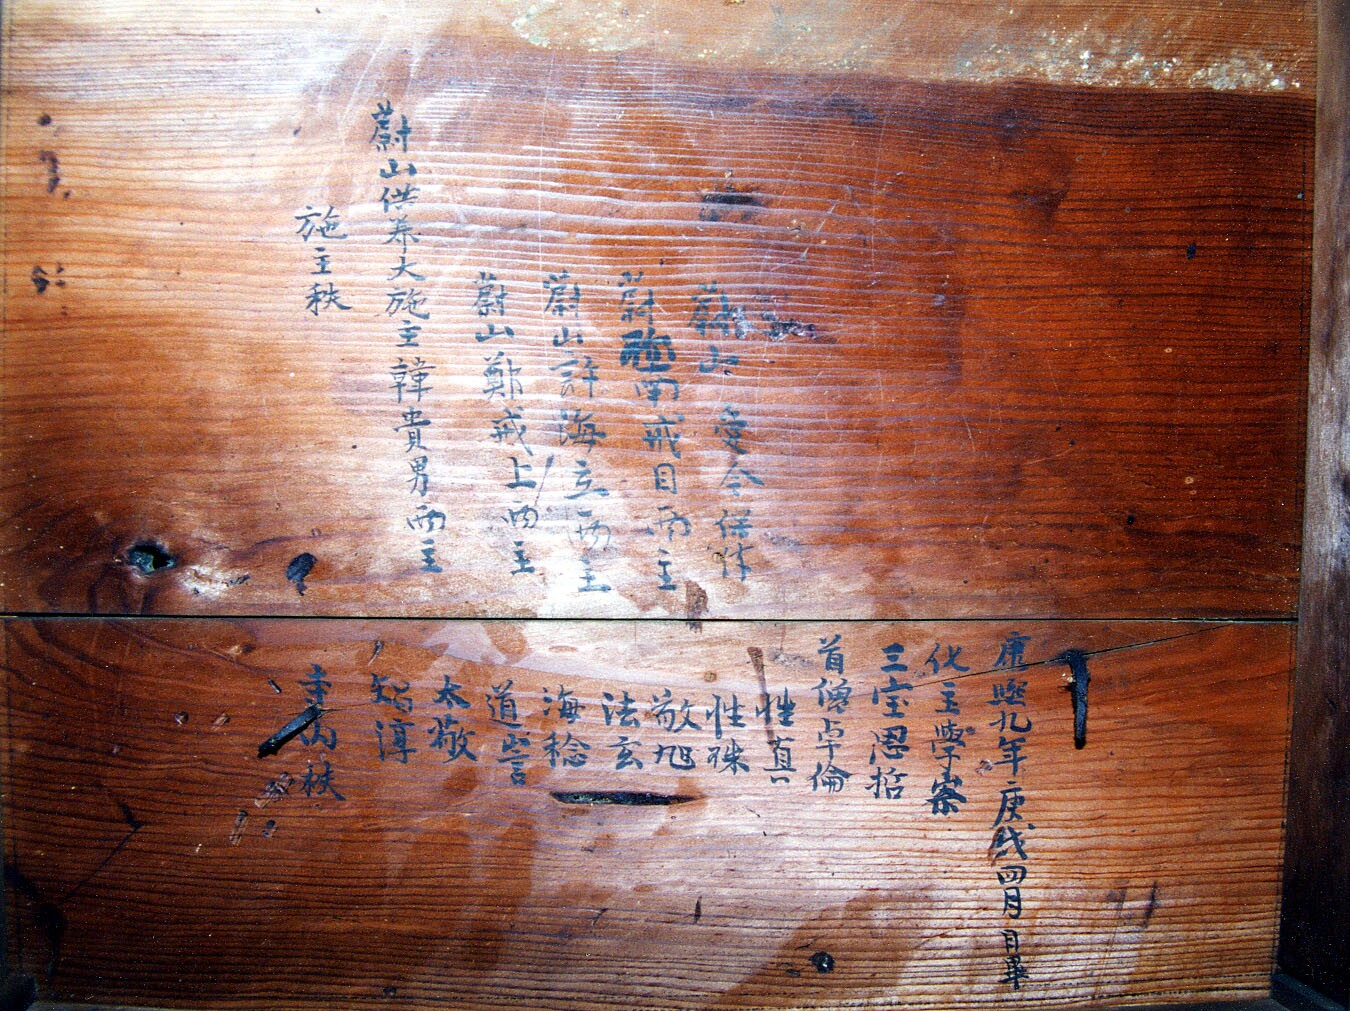 施主秩
蔚山供養大施主韓貴男両主
蔚山鄭戒上両主
蔚山許海立両主
蔚 南戒目両主
蔚山 愛今保体
寺内秩
淳
太敬
道訔
海稔
法玄
敬旭
性殊
性真
首僧卓倫
三宝思哲
化主學寮
康熙九年庚戌四月 日畢